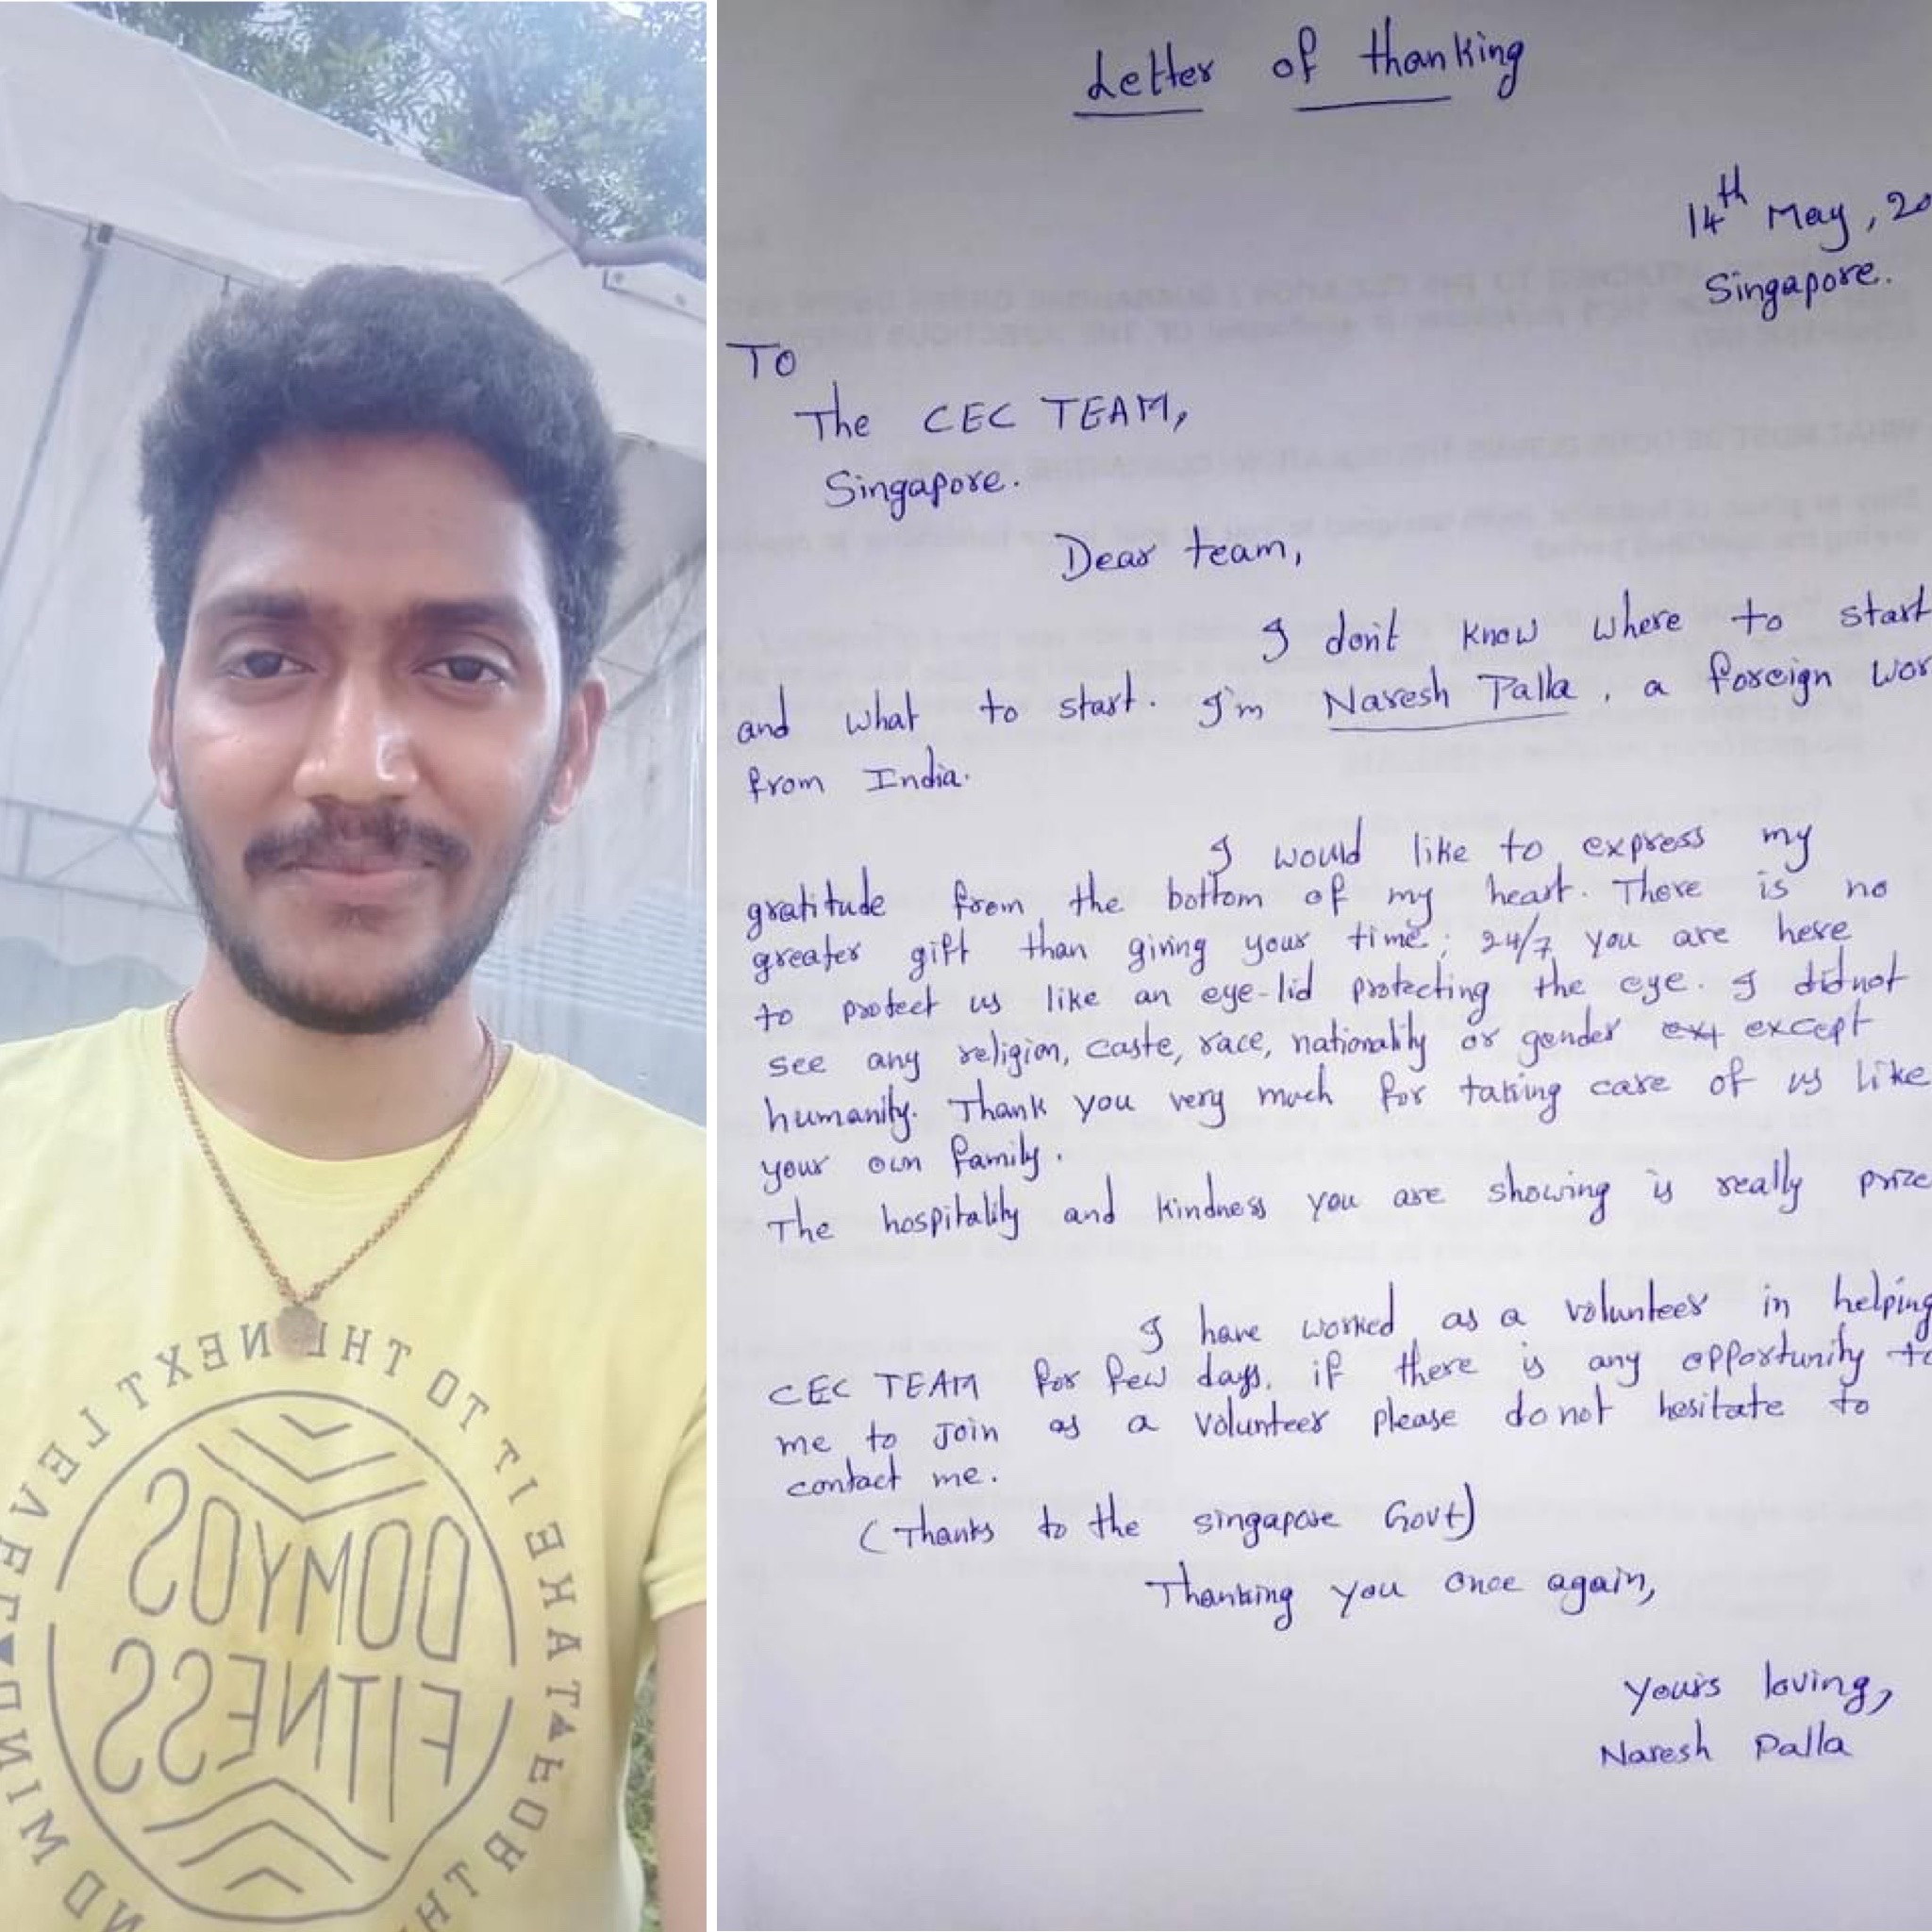 TO THE NEXT LEVEL
TAKE IT
DOMYOS
FITNESS
Letter of thanking
14th May, 20
Singapore.
TO
The CEC TEAM,
Singapore.
Dear team,
I don't know where to start
and what to start. I'm Naresh Palla, a foreign wor
from India.
I would like to express my
gratitude from the bottom of my heart. There is no
greater gift than giving your time; 24/7 you are here
to protect us like an eye-lid protecting the eye. I did not
see any religion, caste, race, nationality or gender ext except
humanity. Thank you very much for taking care of us like
your own family.
The hospitality and kindness you are showing is really prize
I have worked as a volunteer in helping
CEC TEAM for few days. if there is any opportunity to
me to join as a volunteer please do not hesitate to
contact me.
(Thanks to the singapore Govt)
Thanking you once again,
yours loving,
Naresh Palla